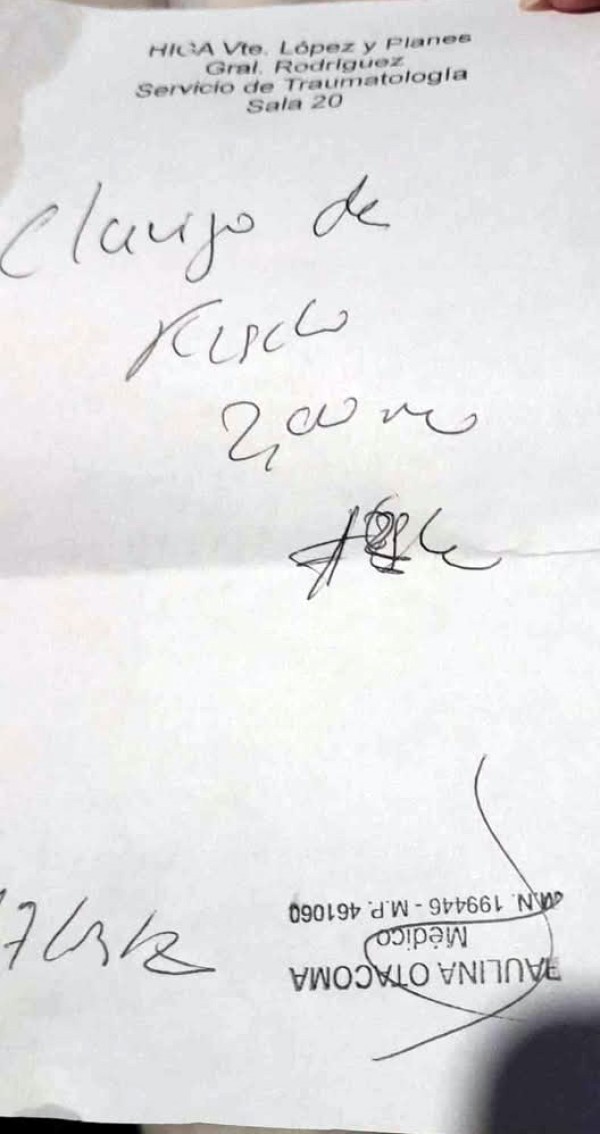 HIGA Vte. López y Planes
Gral. Rodríguez
Servicio de Traumatología
Sala 20
Clavijo de
Kuscho
2,00 m
PAULINA OTACOMA
Médico
M.N. 199446 - M.P. 461060